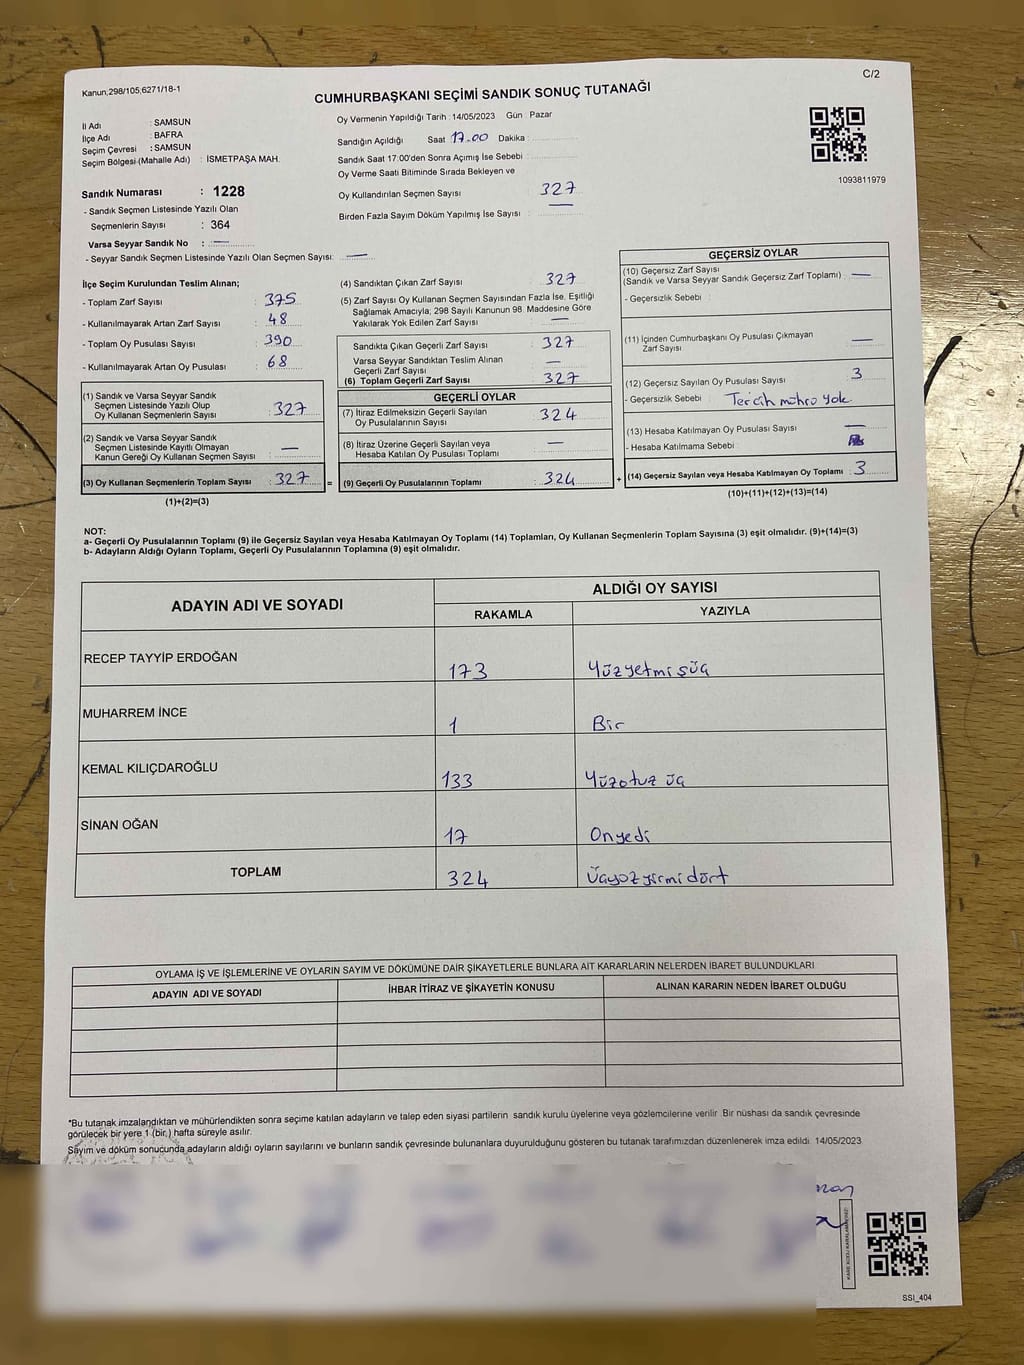 Kanun;298/105;6271/18-1
C/2
CUMHURBAŞKANI SEÇİMİ SANDIK SONUÇ TUTANAĞI
İl Adı : SAMSUN
İlçe Adı : BAFRA
Seçim Çevresi : SAMSUN
Seçim Bölgesi (Mahalle Adı) : İSMETPAŞA MAH.
Sandık Numarası : 1228
- Sandık Seçmen Listesinde Yazılı Olan
Seçmenlerin Sayısı : 364
Varsa Seyyar Sandık No : —
- Seyyar Sandık Seçmen Listesinde Yazılı Olan Seçmen Sayısı: —
Oy Vermenin Yapıldığı Tarih : 14/05/2023 Gün : Pazar
Sandığın Açıldığı Saat 17.00 Dakika :
Sandık Saat 17:00'den Sonra Açımış İse Sebebi :
Oy Verme Saati Bitiminde Sırada Bekleyen ve
Oy Kullandırılan Seçmen Sayısı 327
Birden Fazla Sayım Döküm Yapılmış İse Sayısı : —
1093811979
İlçe Seçim Kurulundan Teslim Alınan;
- Toplam Zarf Sayısı : 375
- Kullanılmayarak Artan Zarf Sayısı : 48
- Toplam Oy Pusulası Sayısı : 390
- Kullanılmayarak Artan Oy Pusulası : 68
(1) Sandık ve Varsa Seyyar Sandık
Seçmen Listesinde Yazılı Olup
Oy Kullanan Seçmenlerin Sayısı : 327
(2) Sandık ve Varsa Seyyar Sandık
Seçmen Listesinde Kayıtlı Olmayan
Kanun Gereği Oy Kullanan Seçmen Sayısı : —
(3) Oy Kullanan Seçmenlerin Toplam Sayısı : 327 =
(1)+(2)=(3)
(4) Sandıktan Çıkan Zarf Sayısı : 327
(5) Zarf Sayısı Oy Kullanan Seçmen Sayısından Fazla İse, Eşitliği
Sağlamak Amacıyla; 298 Sayılı Kanunun 98. Maddesine Göre
Yakılarak Yok Edilen Zarf Sayısı : —
Sandıkta Çıkan Geçerli Zarf Sayısı : 327
Varsa Seyyar Sandıktan Teslim Alınan
Geçerli Zarf Sayısı : —
(6) Toplam Geçerli Zarf Sayısı : 327
GEÇERLİ OYLAR
(7) İtiraz Edilmeksizin Geçerli Sayılan
Oy Pusulalarının Sayısı : 324
(8) İtiraz Üzerine Geçerli Sayılan veya
Hesaba Katılan Oy Pusulası Toplamı : —
(9) Geçerli Oy Pusulalarının Toplamı : 324 +
GEÇERSİZ OYLAR
(10) Geçersiz Zarf Sayısı
(Sandık ve Varsa Seyyar Sandık Geçersiz Zarf Toplamı) : —
- Geçersizlik Sebebi :
(11) İçinden Cumhurbaşkanı Oy Pusulası Çıkmayan
Zarf Sayısı : —
(12) Geçersiz Sayılan Oy Pusulası Sayısı : 3
- Geçersizlik Sebebi : Tercih mührü yok
(13) Hesaba Katılmayan Oy Pusulası Sayısı : —
- Hesaba Katılmama Sebebi :
(14) Geçersiz Sayılan veya Hesaba Katılmayan Oy Toplamı : 3
(10)+(11)+(12)+(13)=(14)
NOT:
a- Geçerli Oy Pusulalarının Toplamı (9) ile Geçersiz Sayılan veya Hesaba Katılmayan Oy Toplamı (14) Toplamları, Oy Kullanan Seçmenlerin Toplam Sayısına (3) eşit olmalıdır. (9)+(14)=(3)
b- Adayların Aldığı Oyların Toplamı, Geçerli Oy Pusulalarının Toplamına (9) eşit olmalıdır.
ADAYIN ADI VE SOYADI ALDIĞI OY SAYISI
RAKAMLA YAZIYLA
RECEP TAYYİP ERDOĞAN 173 Yüzyetmişüç
MUHARREM İNCE 1 Bir
KEMAL KILIÇDAROĞLU 133 Yüzotuz üç
SİNAN OĞAN 17 Onyedi
TOPLAM 324 Üçyüzyirmidört
OYLAMA İŞ VE İŞLEMLERİNE VE OYLARIN SAYIM VE DÖKÜMÜNE DAİR ŞİKAYETLERLE BUNLARA AİT KARARLARIN NELERDEN İBARET BULUNDUKLARI
ADAYIN ADI VE SOYADI İHBAR İTİRAZ VE ŞİKAYETİN KONUSU ALINAN KARARIN NEDEN İBARET OLDUĞU
*Bu tutanak imzalandıktan ve mühürlendikten sonra seçime katılan adayların ve talep eden siyasi partilerin sandık kurulu üyelerine veya gözlemcilerine verilir. Bir nüshası da sandık çevresinde
görülecek bir yere 1 (bir,) hafta süreyle asılır.
Sayım ve döküm sonucunda adayların aldığı oyların sayılarını ve bunların sandık çevresinde bulunanlara duyurulduğunu gösteren bu tutanak tarafımızdan düzenlenerek imza edildi. 14/05/2023
SSI_404